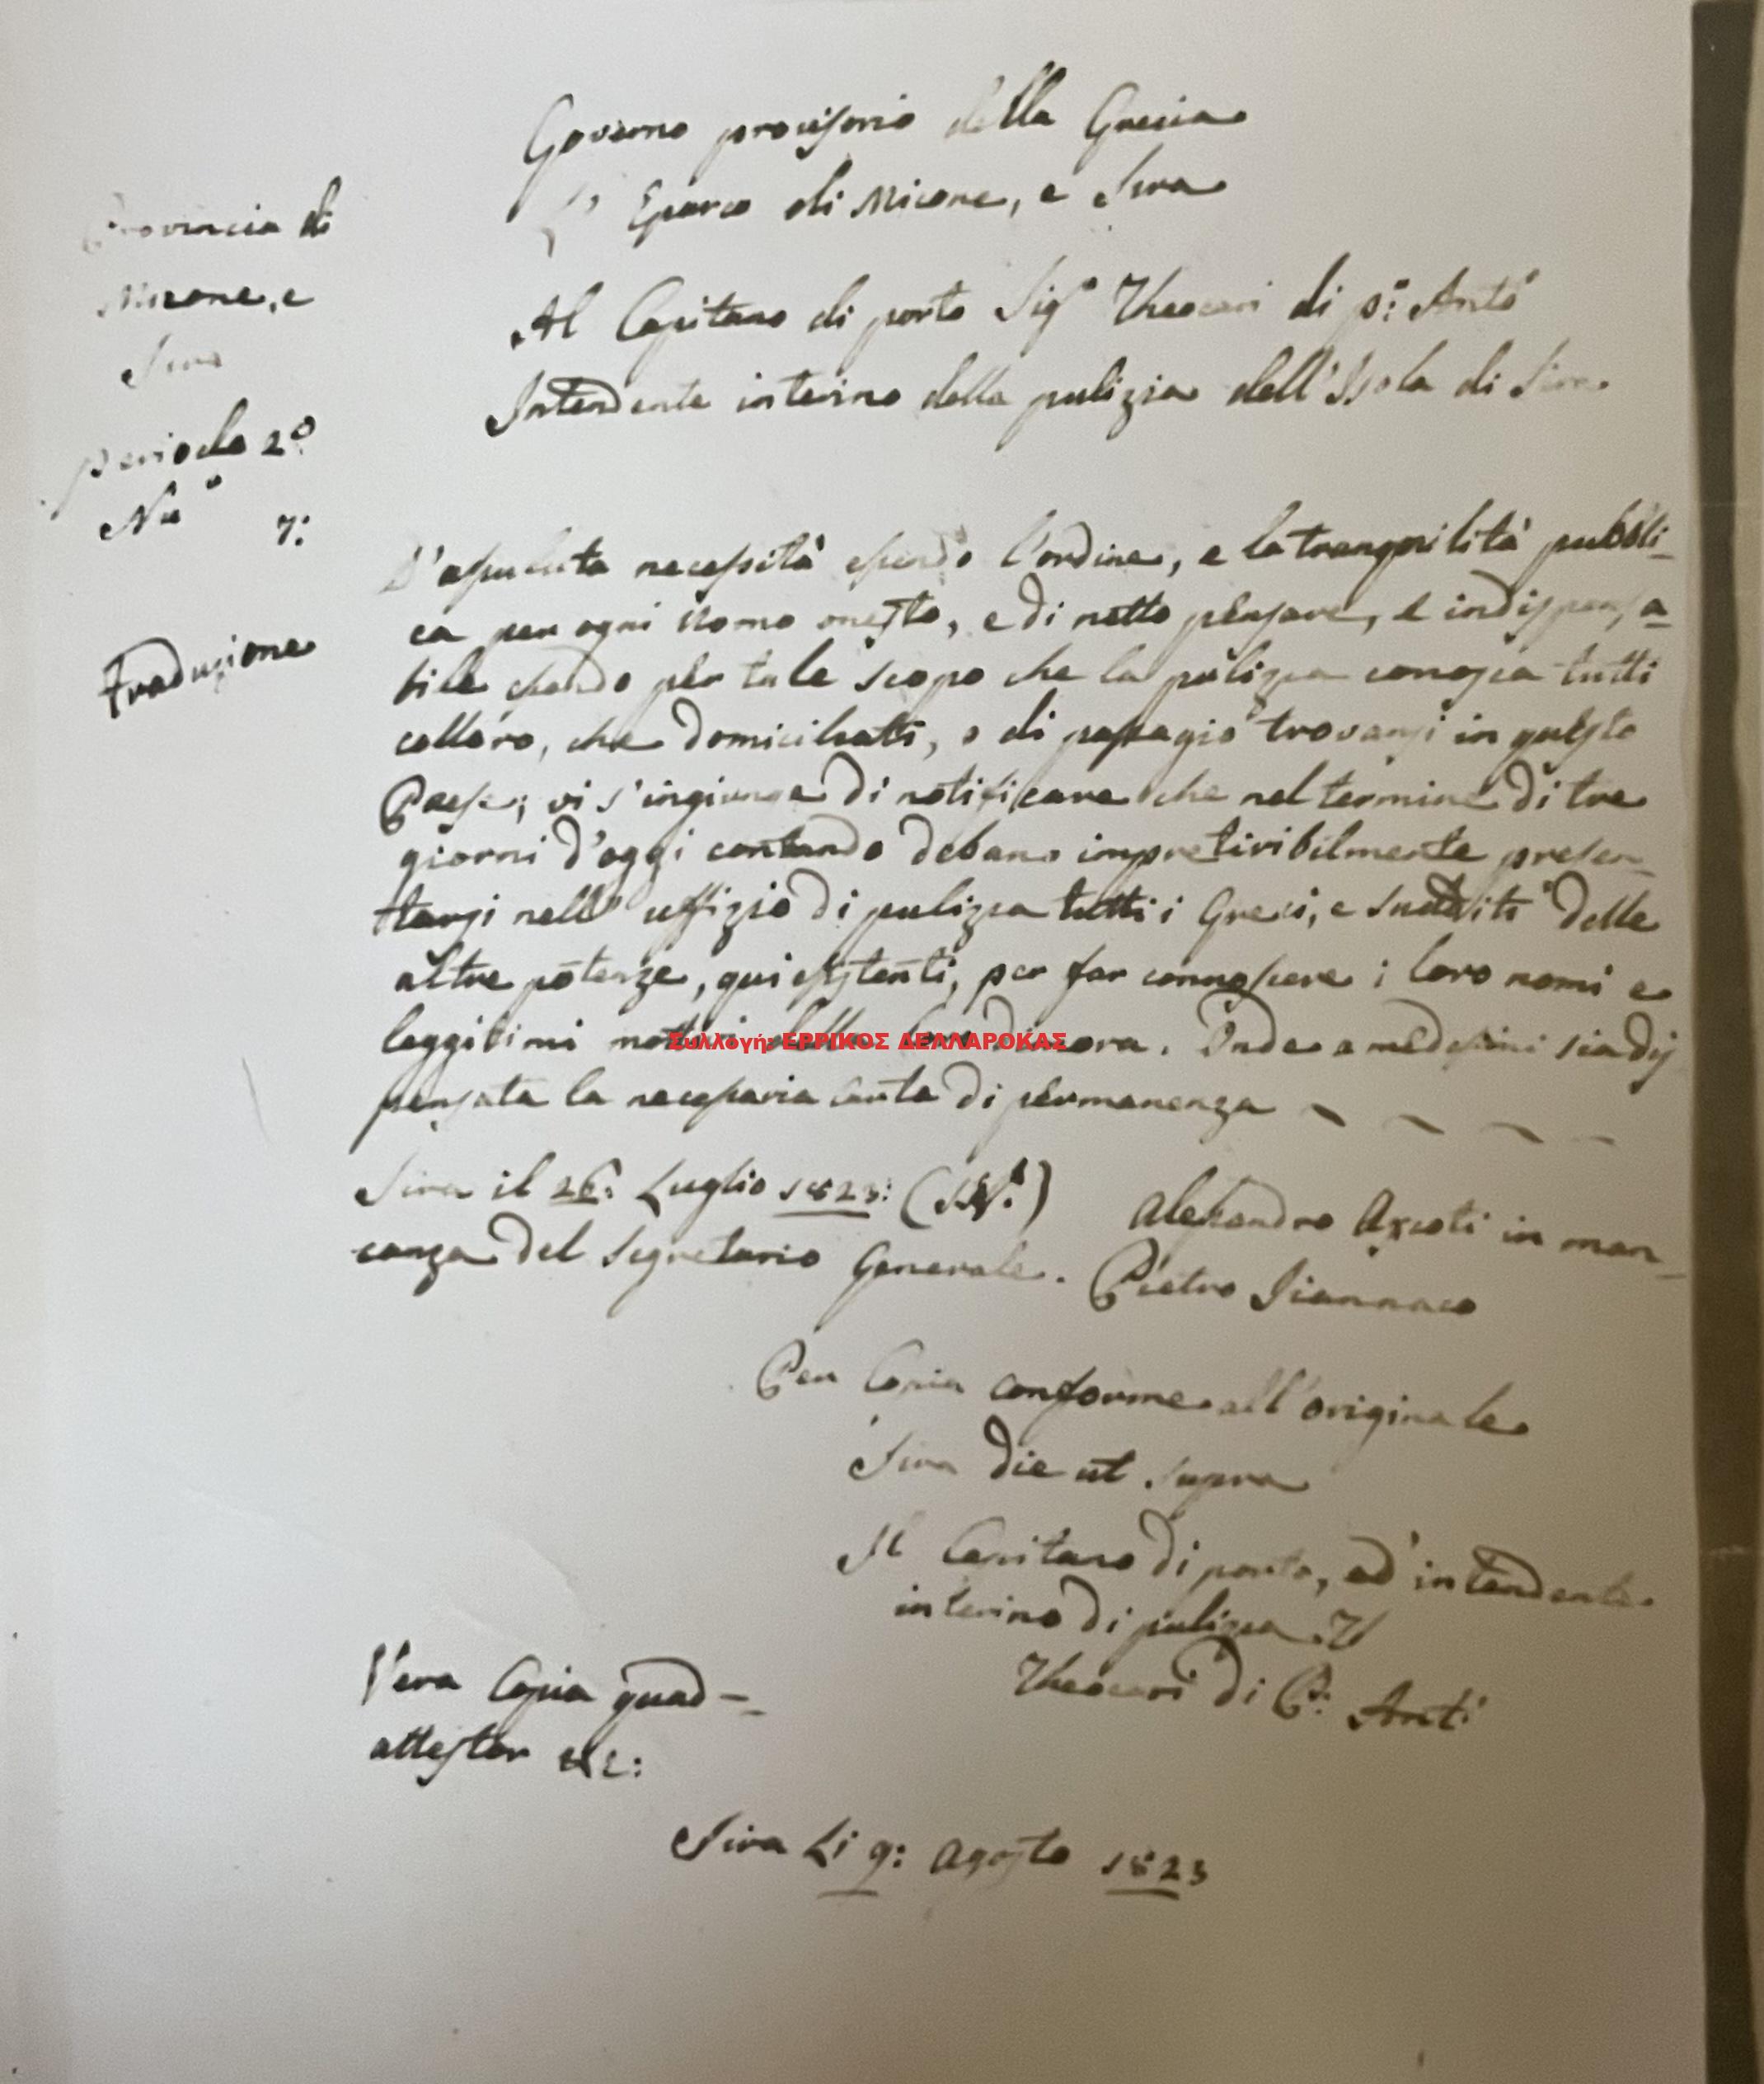 Governo provisorio della Grecia
L' Eparco di Micone, e Sira
Provincia di
Micone, e
Sira
Al Capitano di porto Sigr Theocari di pn: Antò
Intendente interino della pulizia dell'Isola di Sira
periodo 2º
Nuº 7:
Traduzione
D'assuluta necessità essendo l'ordine, e la tranquilità pubbli-
ca per ogni Uomo onesto, e di retto pensare, e indispensa-
bile essendo per tale scopo che la pulizia conosca tutti
colloro, che domiciliatti, o di passagio trovansi in questo
Paese; vi s'ingiunge di notificare che nel termine di tre
giorni d'oggi contando debano impretiribilmente presen-
tarsi nell' uffizio di pulizia tutti i Greci, e sudditi delle
altre potenze, qui esistenti, per far connoscere i loro nomi e
leggitimi motivi della loro dimora. Onde a medesimi sia dis
Συλλογή: ΕΡΡΙΚΟΣ ΔΕΛΛΑΡΟΚΑΣ
pensata la necessaria carta di permanenza
Sira il 26: Luglio 1823: Alessandro Axioti in man-
canza del Segretario Generale. Pietro Giannaco
Per Copia conforme all'originale
Sira die ut supra
Il Capitano di porto, ed intendente
interino di pulizia
Theocari di Pn: Anti
Vera Copia quad-
attestor &c:
Sira Li 9: Agosto 1823